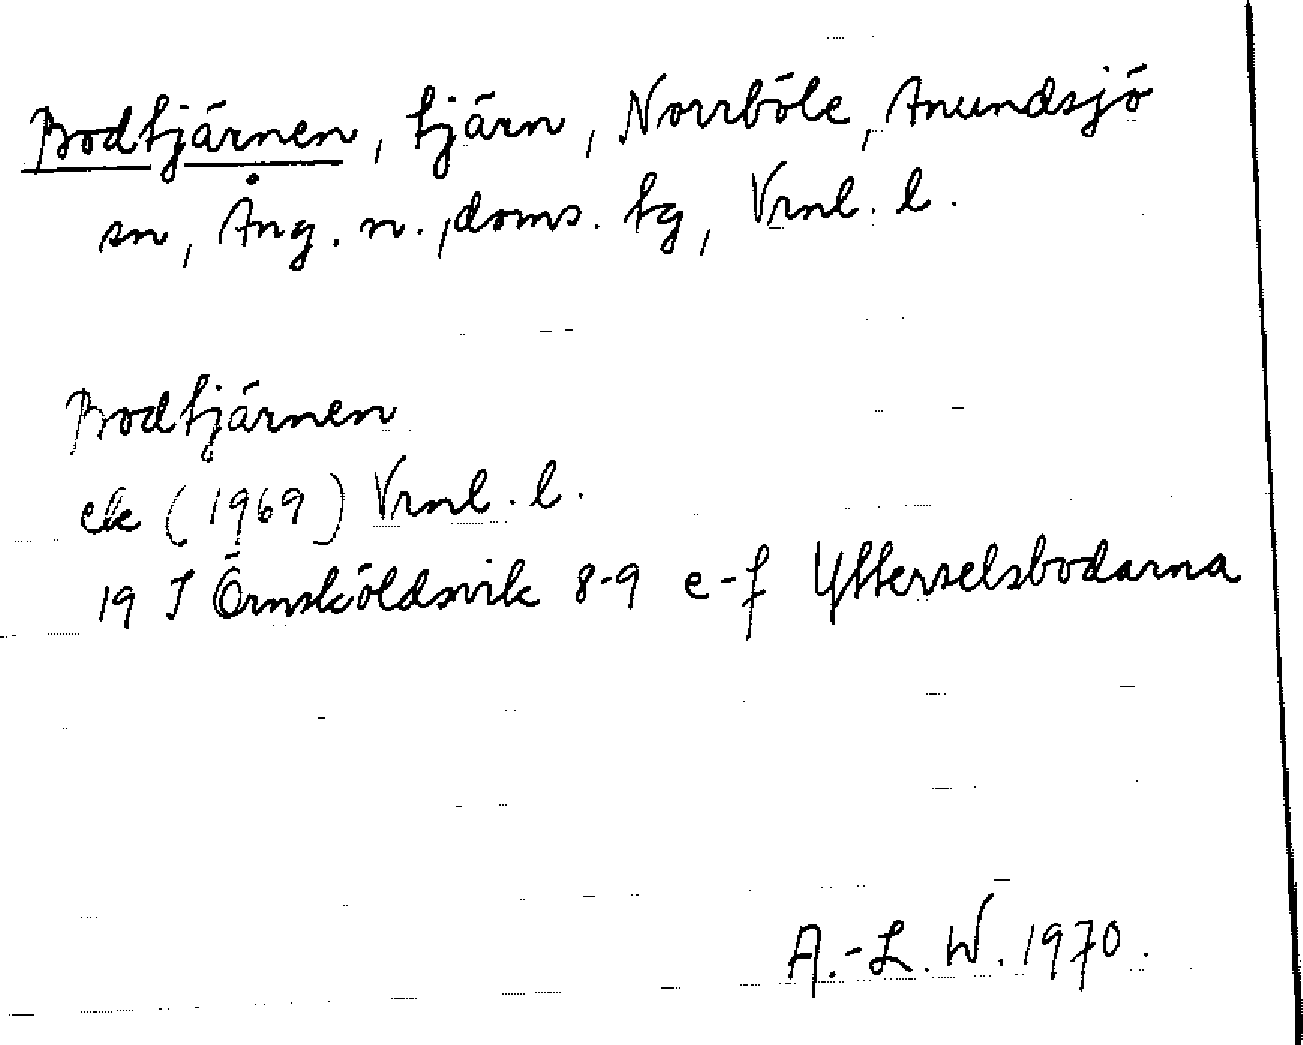 Bodtjärnen, tjärn, Norrböle, Anundsjö
sn, Ång. n. doms. tg, Vrnl. l.
Bodtjärnen
ek (1969) Vrnl. l.
19 I Örnsköldsvik 8-9 e-f Ytterselsbodarna
A.-L. W. 1970.